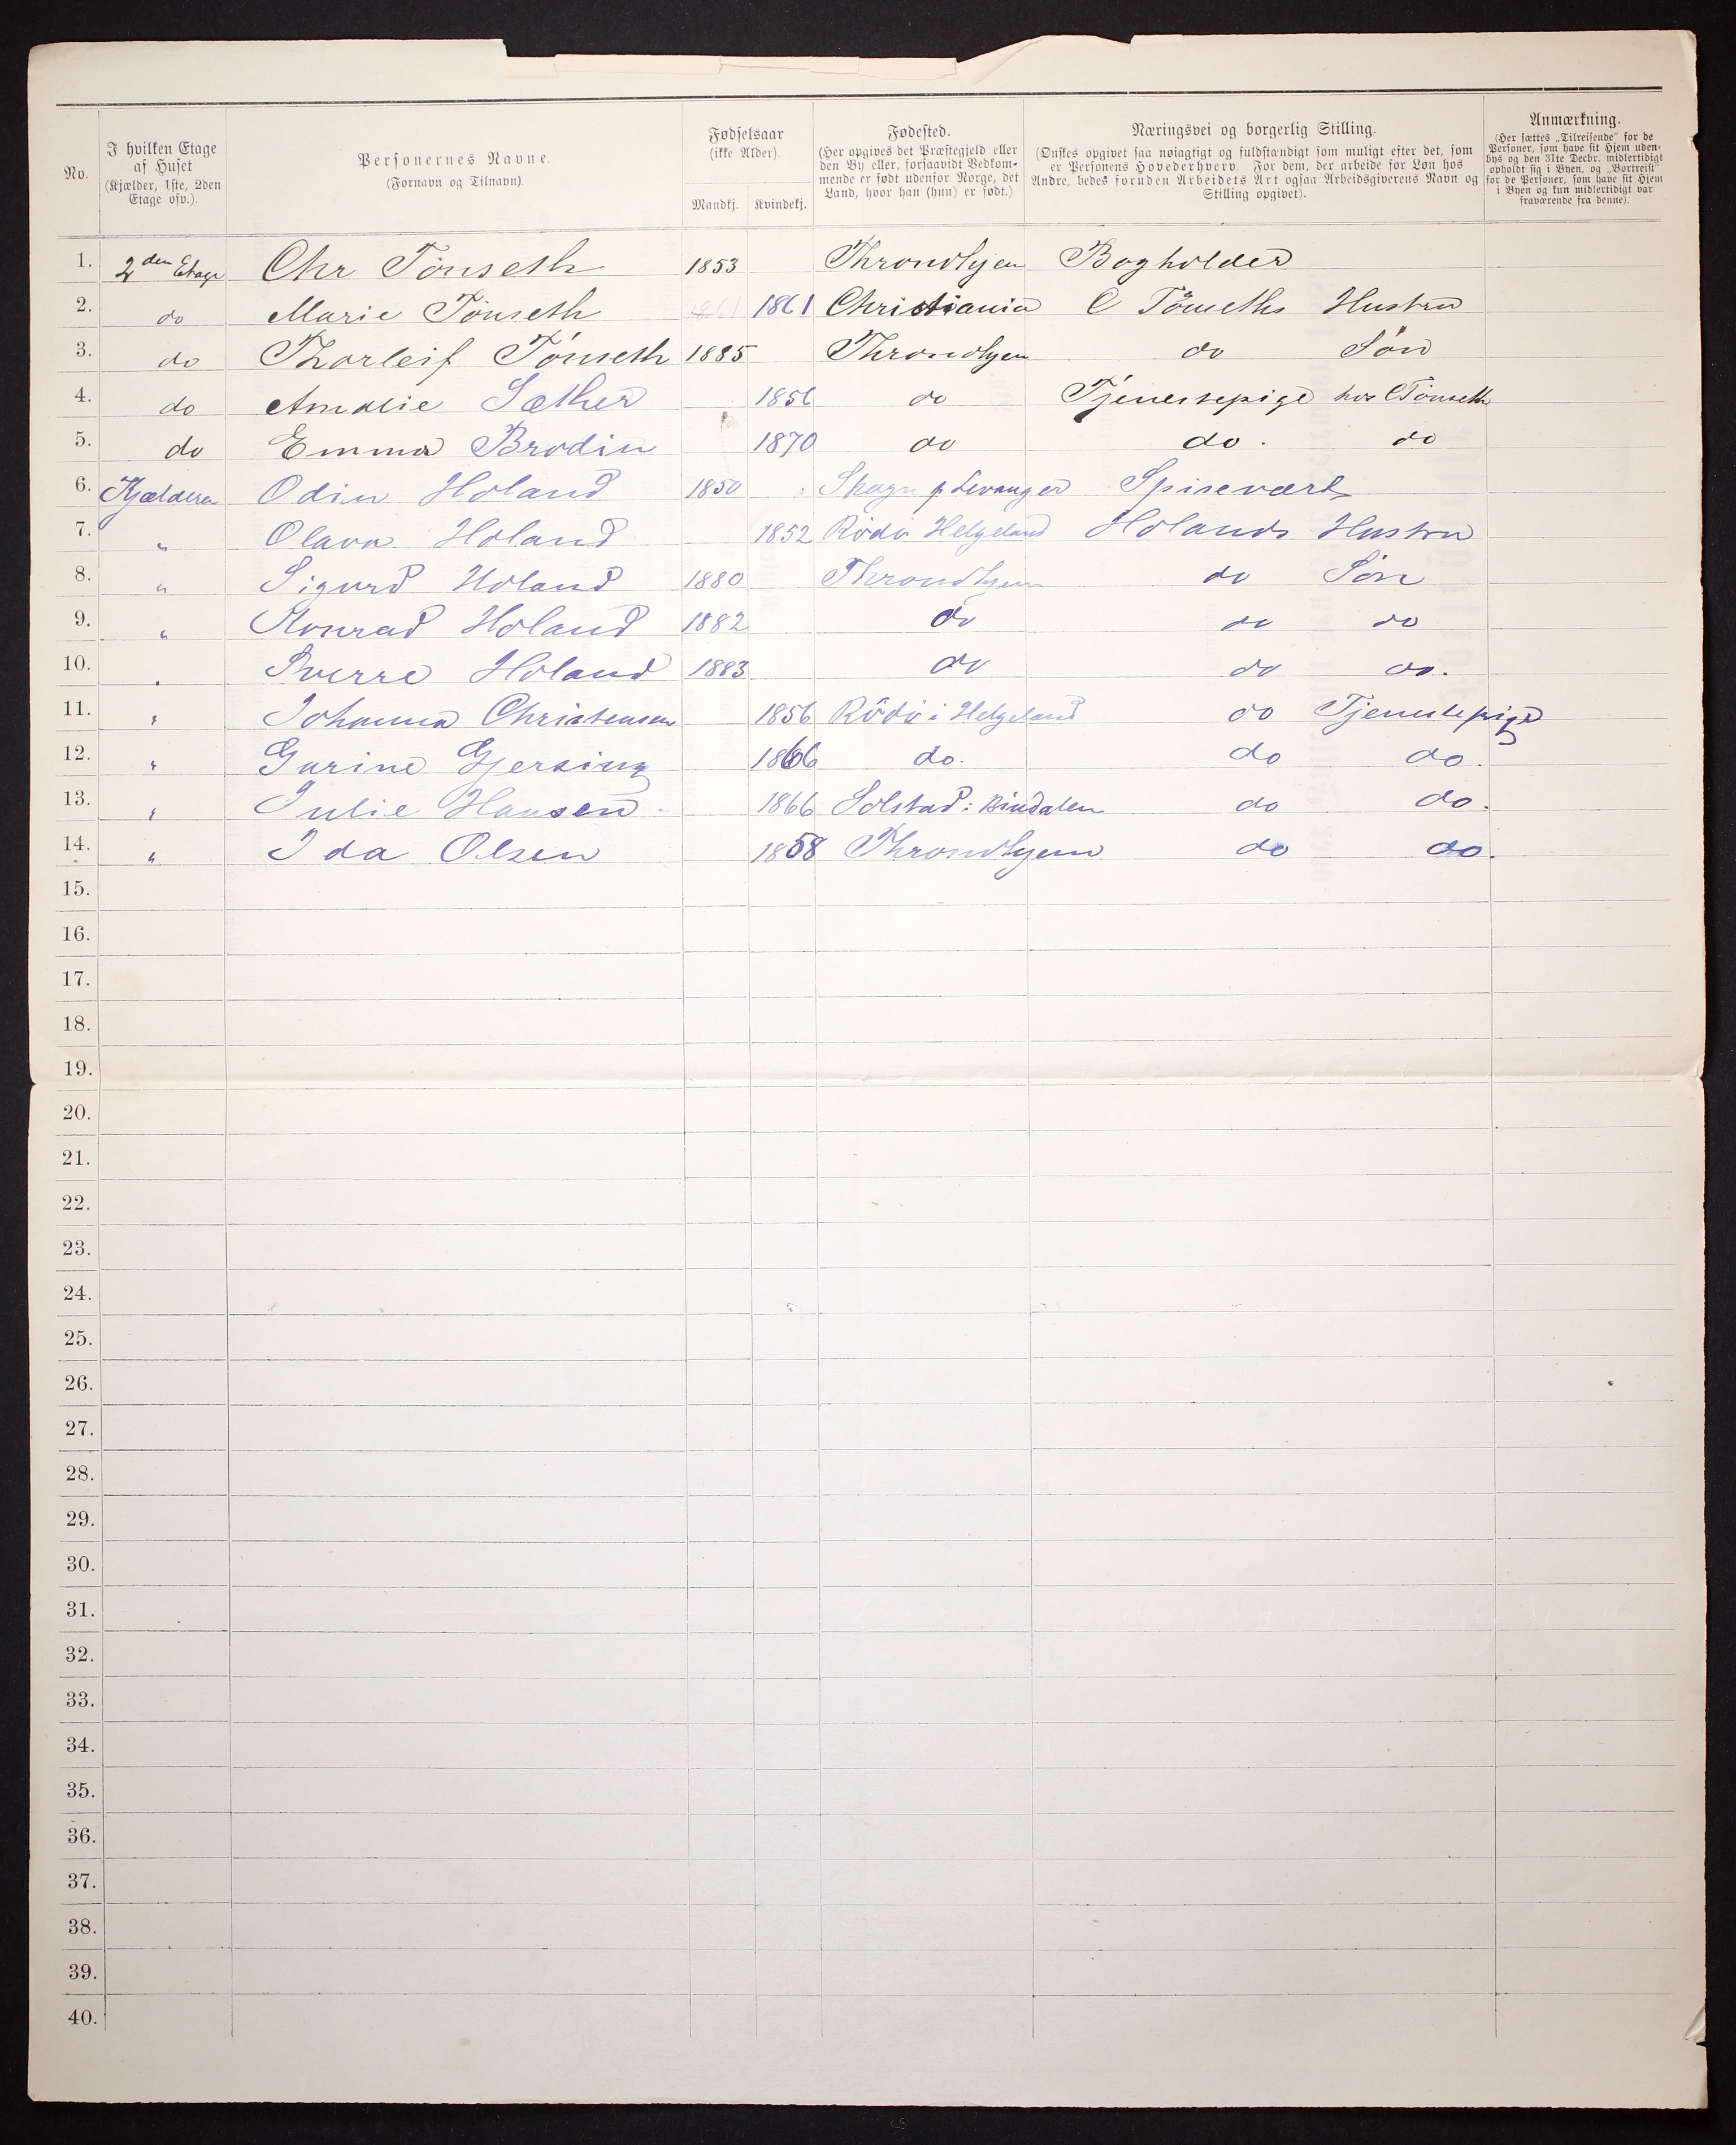 No.
I hvilken Etage
af Huset
(Kjælder, 1ste, 2den
Etage osv.).
Personernes Navne.
(Fornavn og Tilnavn).
Fødselsaar
(ikke Alder).
Mandkj. Kvindekj.
Fødested.
(Her opgives det Præstegjeld eller
den By eller, forsaavidt Vedkom-
mende er født udenfor Norge, det
Land, hvor han (hun) er født.)
Næringsvei og borgerlig Stilling.
(Ønskes opgivet saa nøiagtigt og fuldstændigt som muligt efter det, som
er Personens Hovederhverv. For dem, der arbeide for Løn hos
Andre, bedes foruden Arbeidets Art ogsaa Arbeidsgiverens Navn og
Stilling opgivet).
Anmærkning.
(Her sættes „Tilreisende" for de
Personer, som have sit Hjem uden-
bys og den 31te Decbr. midlertidigt
opholdt sig i Byen, og „Bortreist"
for de Personer, som have sit Hjem
i Byen og kun midlertidigt var
fraværende fra denne).
1. 2den Etage Chr Tönseth 1853 Throndhjem Bogholder
2. do Marie Tönseth 1861 1861 Christiania C Tönseths Hustru
3. do Thorleif Tönseth 1885 Throndhjem do Søn
4. do Amalie Sæther 1856 do Tjenestepige hos C Tönseth
5. do Emma Brodin 1870 do do. do
6. Kjælderen Odin Holand 1850 Skogn p Levanger Spisevært
7. " Olava Holand 1852 Rödö Helgeland Holands Hustru
8. " Sigurd Holand 1880 Throndhjem do Søn
9. " Konrad Holand 1882 do do do
10. " Sverre Holand 1883 do do do.
11. " Johanna Christensen 1856 Rödö i Helgeland do Tjenestepige
12. " Gurine Gjersing 1866 do. do do.
13. " Julie Hansen 1866 Solstad i Bindalen do do.
14. " Ida Olsen 1858 Throndhjem do do.
15.
16.
17.
18.
19.
20.
21.
22.
23.
24.
25.
26.
27.
28.
29.
30.
31.
32.
33.
34.
35.
36.
37.
38.
39.
40.